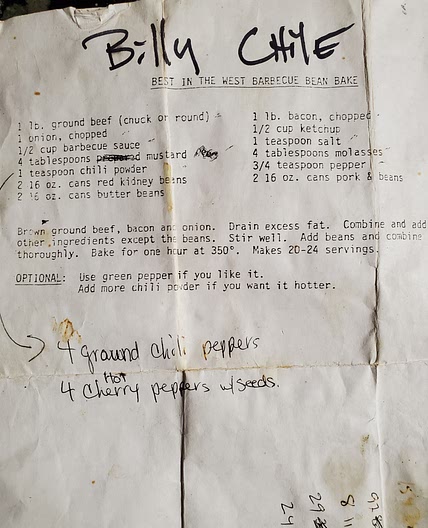 Billy CHILE
BEST IN THE WEST BARBECUE BEAN BAKE
1 lb. ground beef (chuck or round)
1 onion, chopped
1/2 cup barbecue sauce
4 tablespoons mustard
1 teaspoon chili powder
2 16 oz. cans red kidney beans
2 16 oz. cans butter beans
1 lb. bacon, chopped
1/2 cup ketchup
1 teaspoon salt
4 tablespoons molasses
3/4 teaspoon pepper
2 16 oz. cans pork & beans
Brown ground beef, bacon and onion. Drain excess fat. Combine and add
other ingredients except the beans. Stir well. Add beans and combine
thoroughly. Bake for one hour at 350°. Makes 20-24 servings.
OPTIONAL: Use green pepper if you like it.
Add more chili powder if you want it hotter.
4 ground chili peppers
4 Hot Cherry peppers w/seeds.